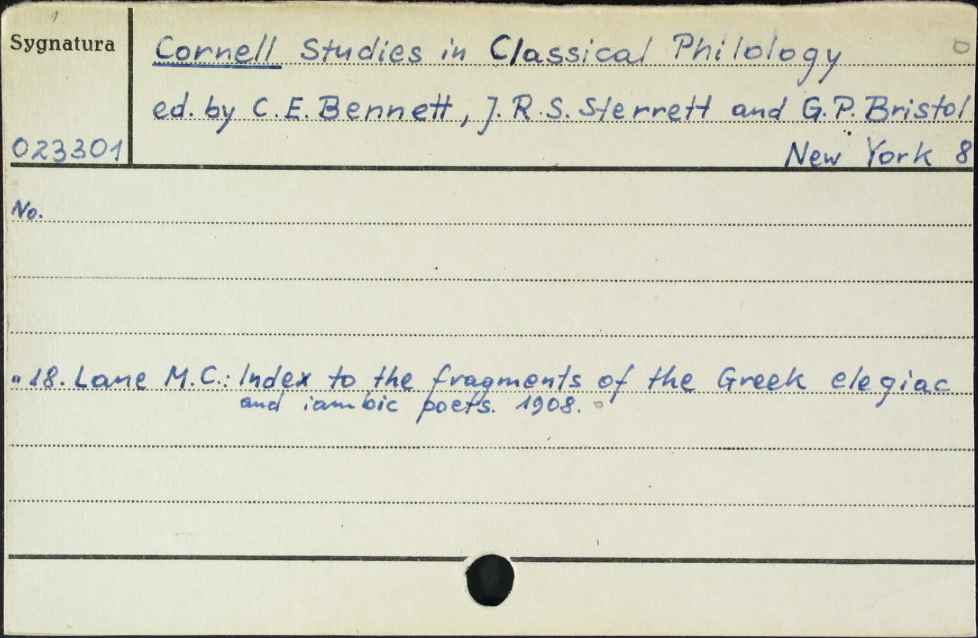 Sygnatura
Cornell Studies in Classical Philology
ed. by C. E. Bennett, J. R. S. Sterrett and G. P. Bristol
023301
New York 8
No.
" 18. Lane M.C.: Index to the fragments of the Greek elegiac
and iambic poets. 1908.